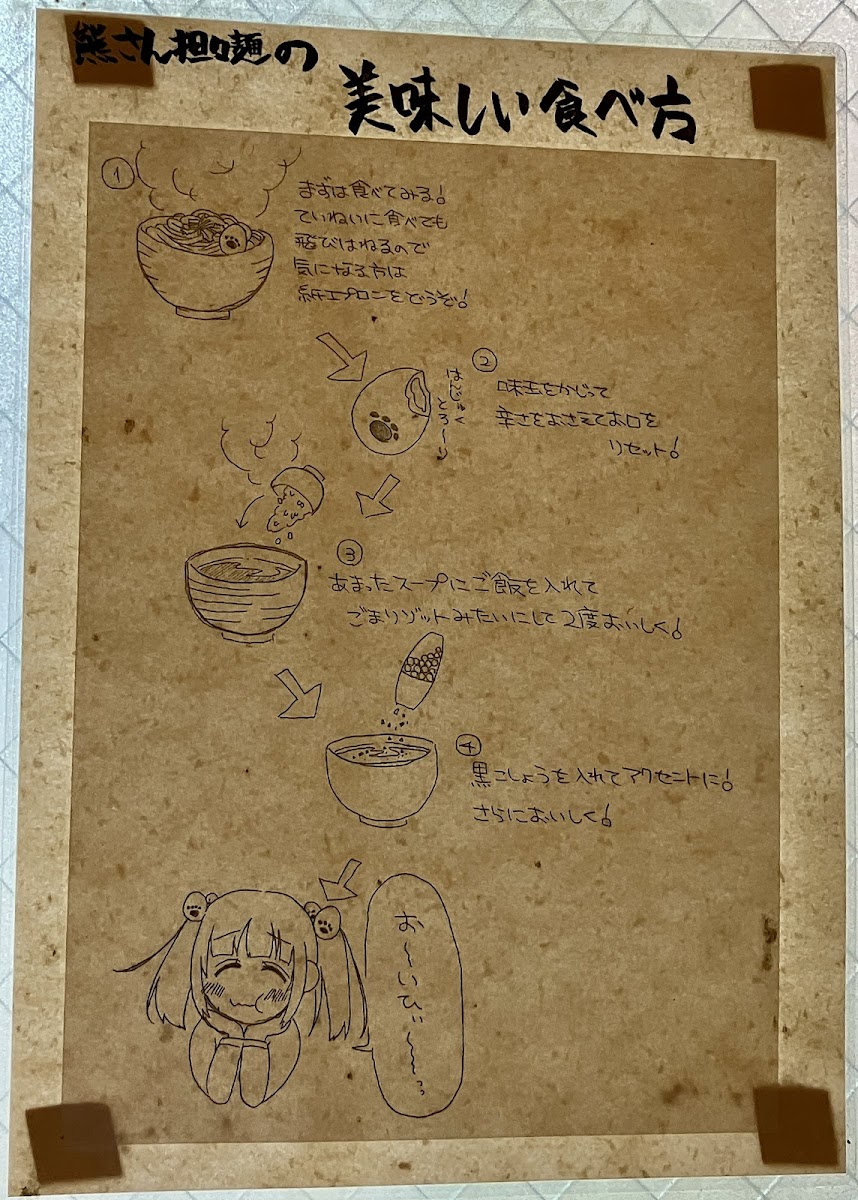 熊さん担々麺の
美味しい食べ方
①
まずは食べてみる!
ていねいに食べても
飛びはねるので
気になる方は
紙エプロンをどうぞ!
②
はんじゅく
とろ～り
味玉をかじって
辛さをおさえてお口を
リセット!
③
あまったスープにご飯を入れて
ごまリゾットみたいにして2度おいしく!
④
黒こしょうを入れてアクセントに!
さらにおいしく!
お～いひぃ～～っ